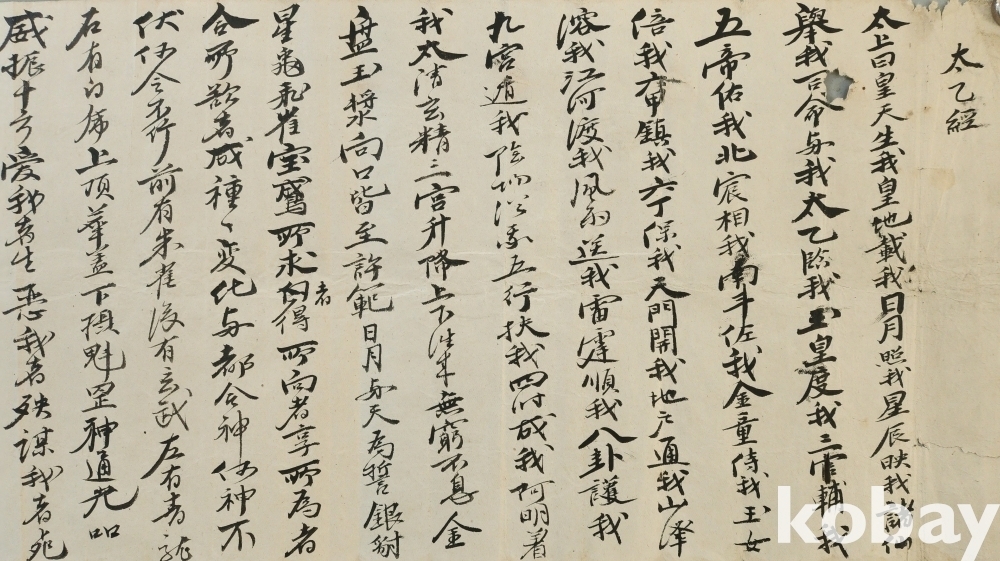 太乙經
太上曰皇天生我皇地載我日月照我星辰映我諸仙
舉我司命与我太乙臨我玉皇度我三官輔我
五帝佑我北宸相我南斗佐我金童侍我玉女
倍我六甲鎮我六丁保我天門開我地户通我山澤
溶我江河渡我風雨送我雷霆順我八卦護我
九宮遁我陰陽從我五行扶我四时成我阿明着
我太清玄精三宮升降上下往來無窮不息金
盘玉漿向口皆至許範日月与天爲誓銀
星飛雀室鸞所求者得所向者亨所爲者
合所欲者成種々変化与都合神何神不
伏何令不行前有朱雀後有玄武左有青龍
右有白虎上頂華盖下摂魁罡神通光品
威振十方愛我者生惡我者殃謀我者死
kobay